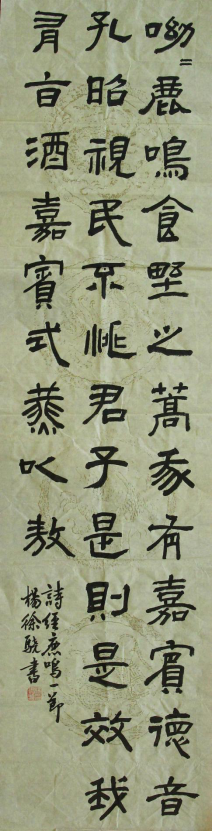 呦=鹿鳴食野之蒿我有嘉賓德音
孔昭視民不恌君子是則是效我
有旨酒嘉賓式燕以敖
詩經鹿鳴一節
楊徐書